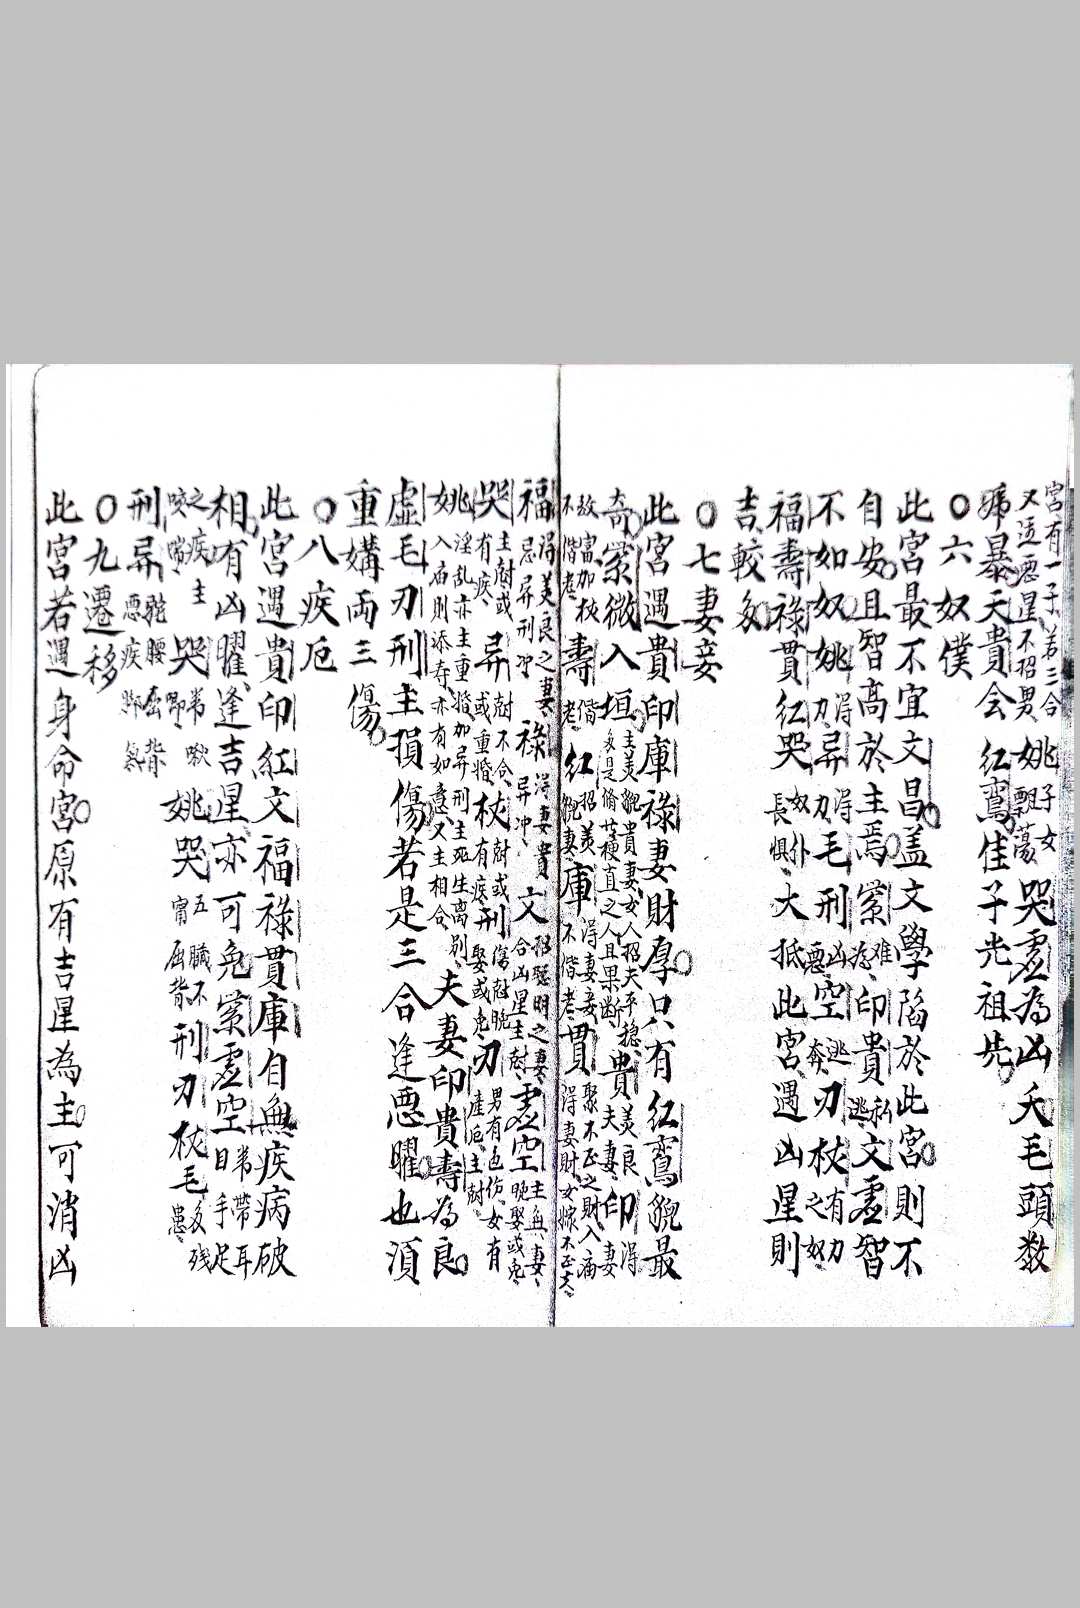 宮有一子、若三合
又逢惡星不招男、姚子女飄蕩哭虛為凶夭毛頭数
㾗暴天貴会紅鸞佳子光祖先
○六奴僕
此宮最不宜文昌盖文學陷於此宮則不
自安且智高於主焉紫难為印貴私逃文虛智
不如奴姚得力異得力毛刑凶惡空逃奔刃杖有之奴力
福壽祿貫紅哭奴僕長惧大抵此宮遇凶星則
吉較多
○七妻妾
此宮遇貴印庫祿妻財厚只有紅鸞貌最
奇紫微入垣主美貌貴妻、女人招夫平穩、多是脩姱植直之人且果斷、貴美良夫妻印得妻
故富加杖不偕老、壽偕老、紅招美貌妻庫得妻妾不偕老貫聚不正之財入庙得妻財、女嫁不正夫、
福得美良之妻、忌异刑冲、祿得妻貴异冲、文招聰明之妻、合凶星主尅虛空主無妻、晚娶或免、
哭主尅或有疾、异尅不合、或重婚、杖尅或有疾刑傷尅晚娶或免、刃男有色仿女有產厄、主尅、
姚淫乱亦主重婚加异刑主死生离别、入庙則添寿亦有如意又主相合、夫妻印貴壽為良
虛毛刃刑主損傷若是三合逢惡曜也湏
重媾両三傷
○八疾厄
此宮遇貴印紅文福祿貫庫自無疾病破
相有凶曜逢吉星亦可免紫虛空常帶耳目手足
之疾主咬嘴、哭常啾唧姚哭五臟不甯屈背刑刃杖毛多殘患、
刑异駝腰屈背惡疾脚氣
○九遷移
此宮若遇身命宮原有吉星為主可消凶